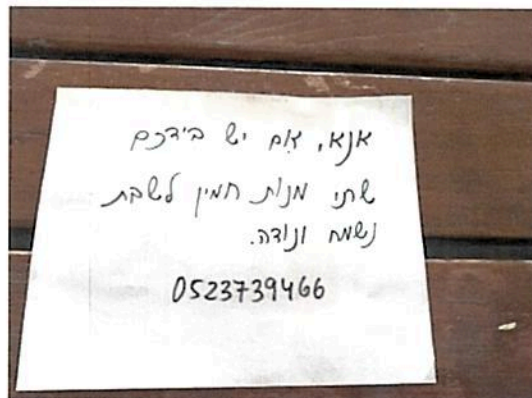 אנא, אם יש בידכם
שתי מנות חמין לשבת
נשמח ונודה.
0523739466